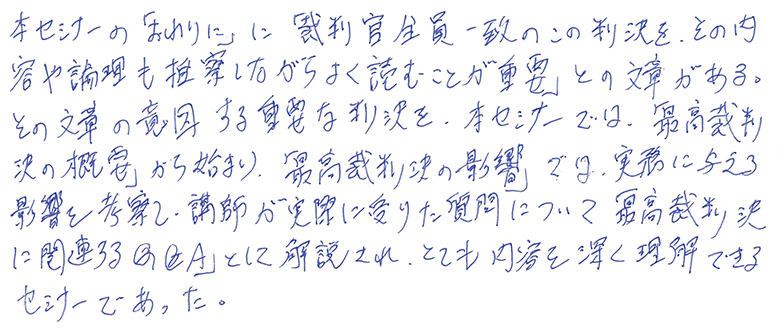 本セミナーの「おわりに」に「裁判官全員一致のこの判決を、その内
容や論理も推察しながらよく読むことが重要」との文章がある。
その文章の意図する重要な判決を、本セミナーでは、「最高裁判
決の概要」から始まり、「最高裁判決の影響」では、実務に与える
影響を考察し、講師が実際に受けた質問について「最高裁判決
に関連するQ&A」として解説され、とても内容を深く理解できる
セミナーであった。